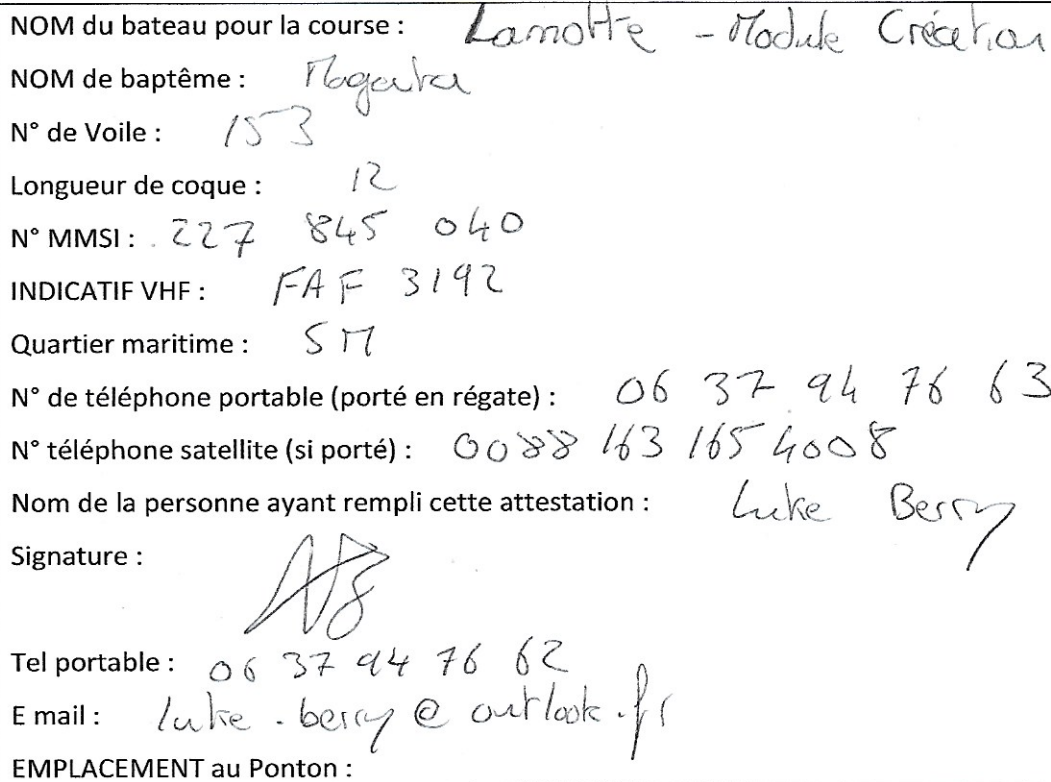 NOM du bateau pour la course : Lamotte - Module Création
NOM de baptême :
N° de Voile : 153
Longueur de coque : 12
N° MMSI : 227 845 040
INDICATIF VHF : FAF 3192
Quartier maritime : SM
N° de téléphone portable (porté en régate) : 06 37 94 76 63
N° téléphone satellite (si porté) : 0088 163 165 4008
Nom de la personne ayant rempli cette attestation : Luke Berry
Signature :
Tel portable : 06 37 94 76 62
E mail : luke.berry@outlook.fr
EMPLACEMENT au Ponton :